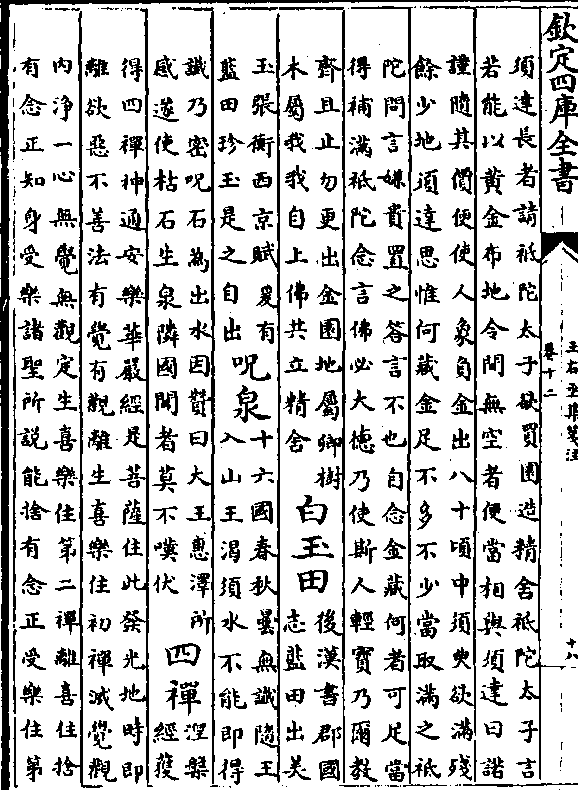 欽定四庫全書
王右丞集箋注
卷十二
十八
須達長者請祇陀太子欲買園造精舍祇陀太子言
若能以黃金布地令間無空者便當相與須達曰諾
謹隨其價便使人象負金出八十頃中須臾欲滿殘
餘少地須達思惟何藏金足不多不少當取滿之祇
陀問言嫌貴置之答言不也自念金藏何者可足當
得補滿祇陀念言佛必大德乃使斯人輕寶乃爾教
齊且止勿更出金園地屬卿樹
木屬我我自上佛共立精舍
白玉田
後漢書郡國
志藍田出美
玉張衡西京賦爰有
藍田珍玉是之自出
呪泉
十六國春秋曇無讖隨王
入山王渴須水不能即得
讖乃密呪石為出水因贊曰大王惠澤所
感遂使枯石生泉隣國聞者莫不嘆伏
四禪
涅槃
經獲
得四禪神通安樂華嚴經是菩薩住此發光地時即
離欲惡不善法有覺有觀離生喜樂住初禪滅覺觀
內淨一心無覺無觀定生喜樂住第二禪離喜住捨
有念正知身受樂諸聖所說能捨有念正受樂住第